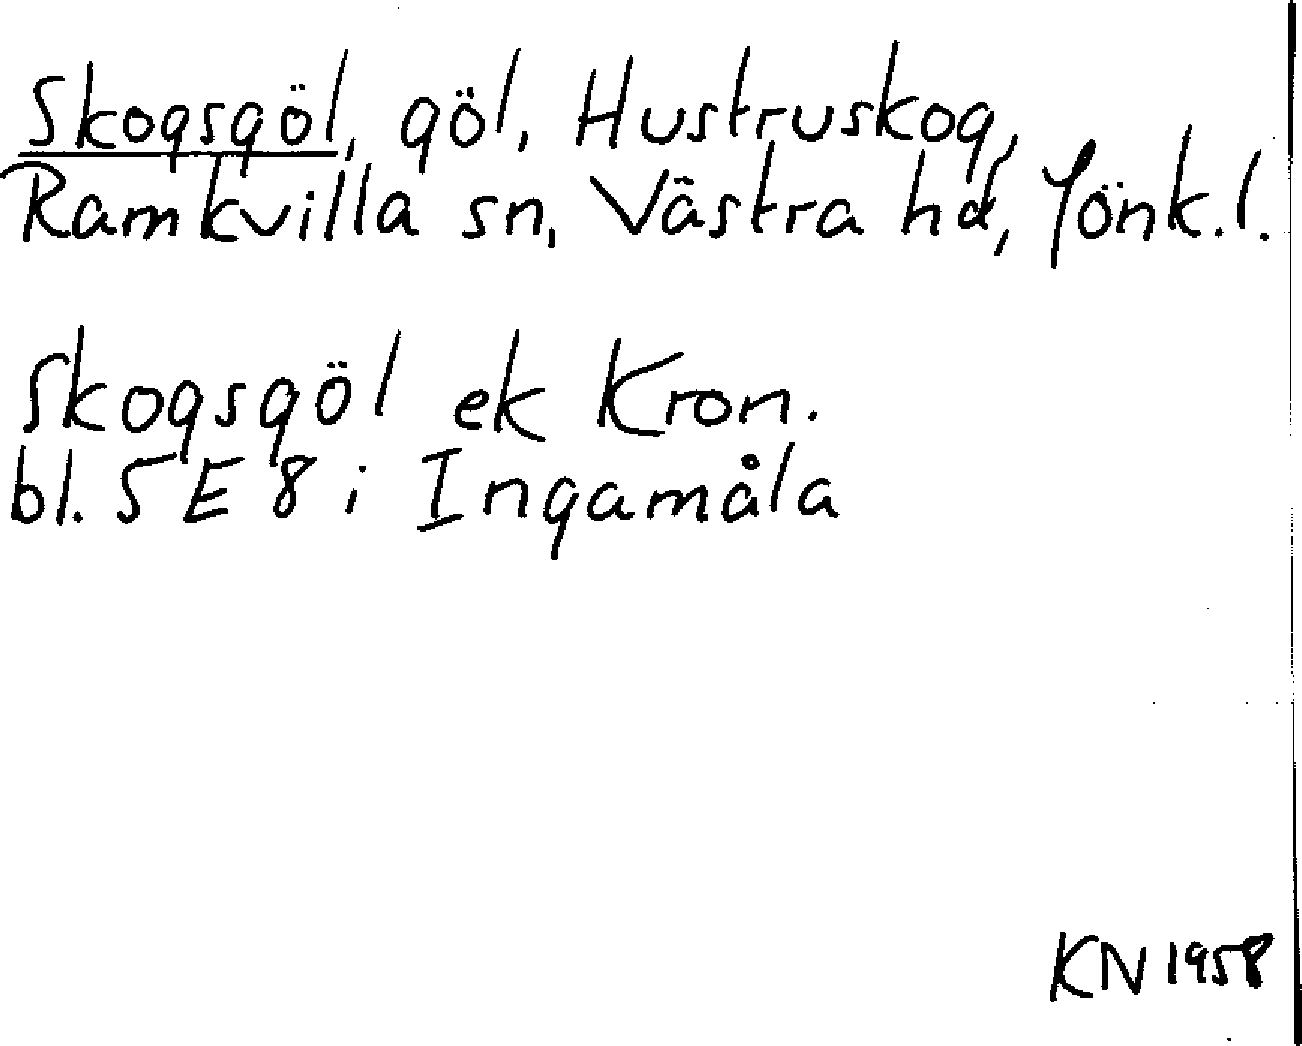 Skogsgöl, göl, Hustruskog,
Ramkvilla sn, Västra hd, Jönk.l.
Skogsgöl ek Kron.
bl. 5 E 8 i Ingamåla
KN 1958